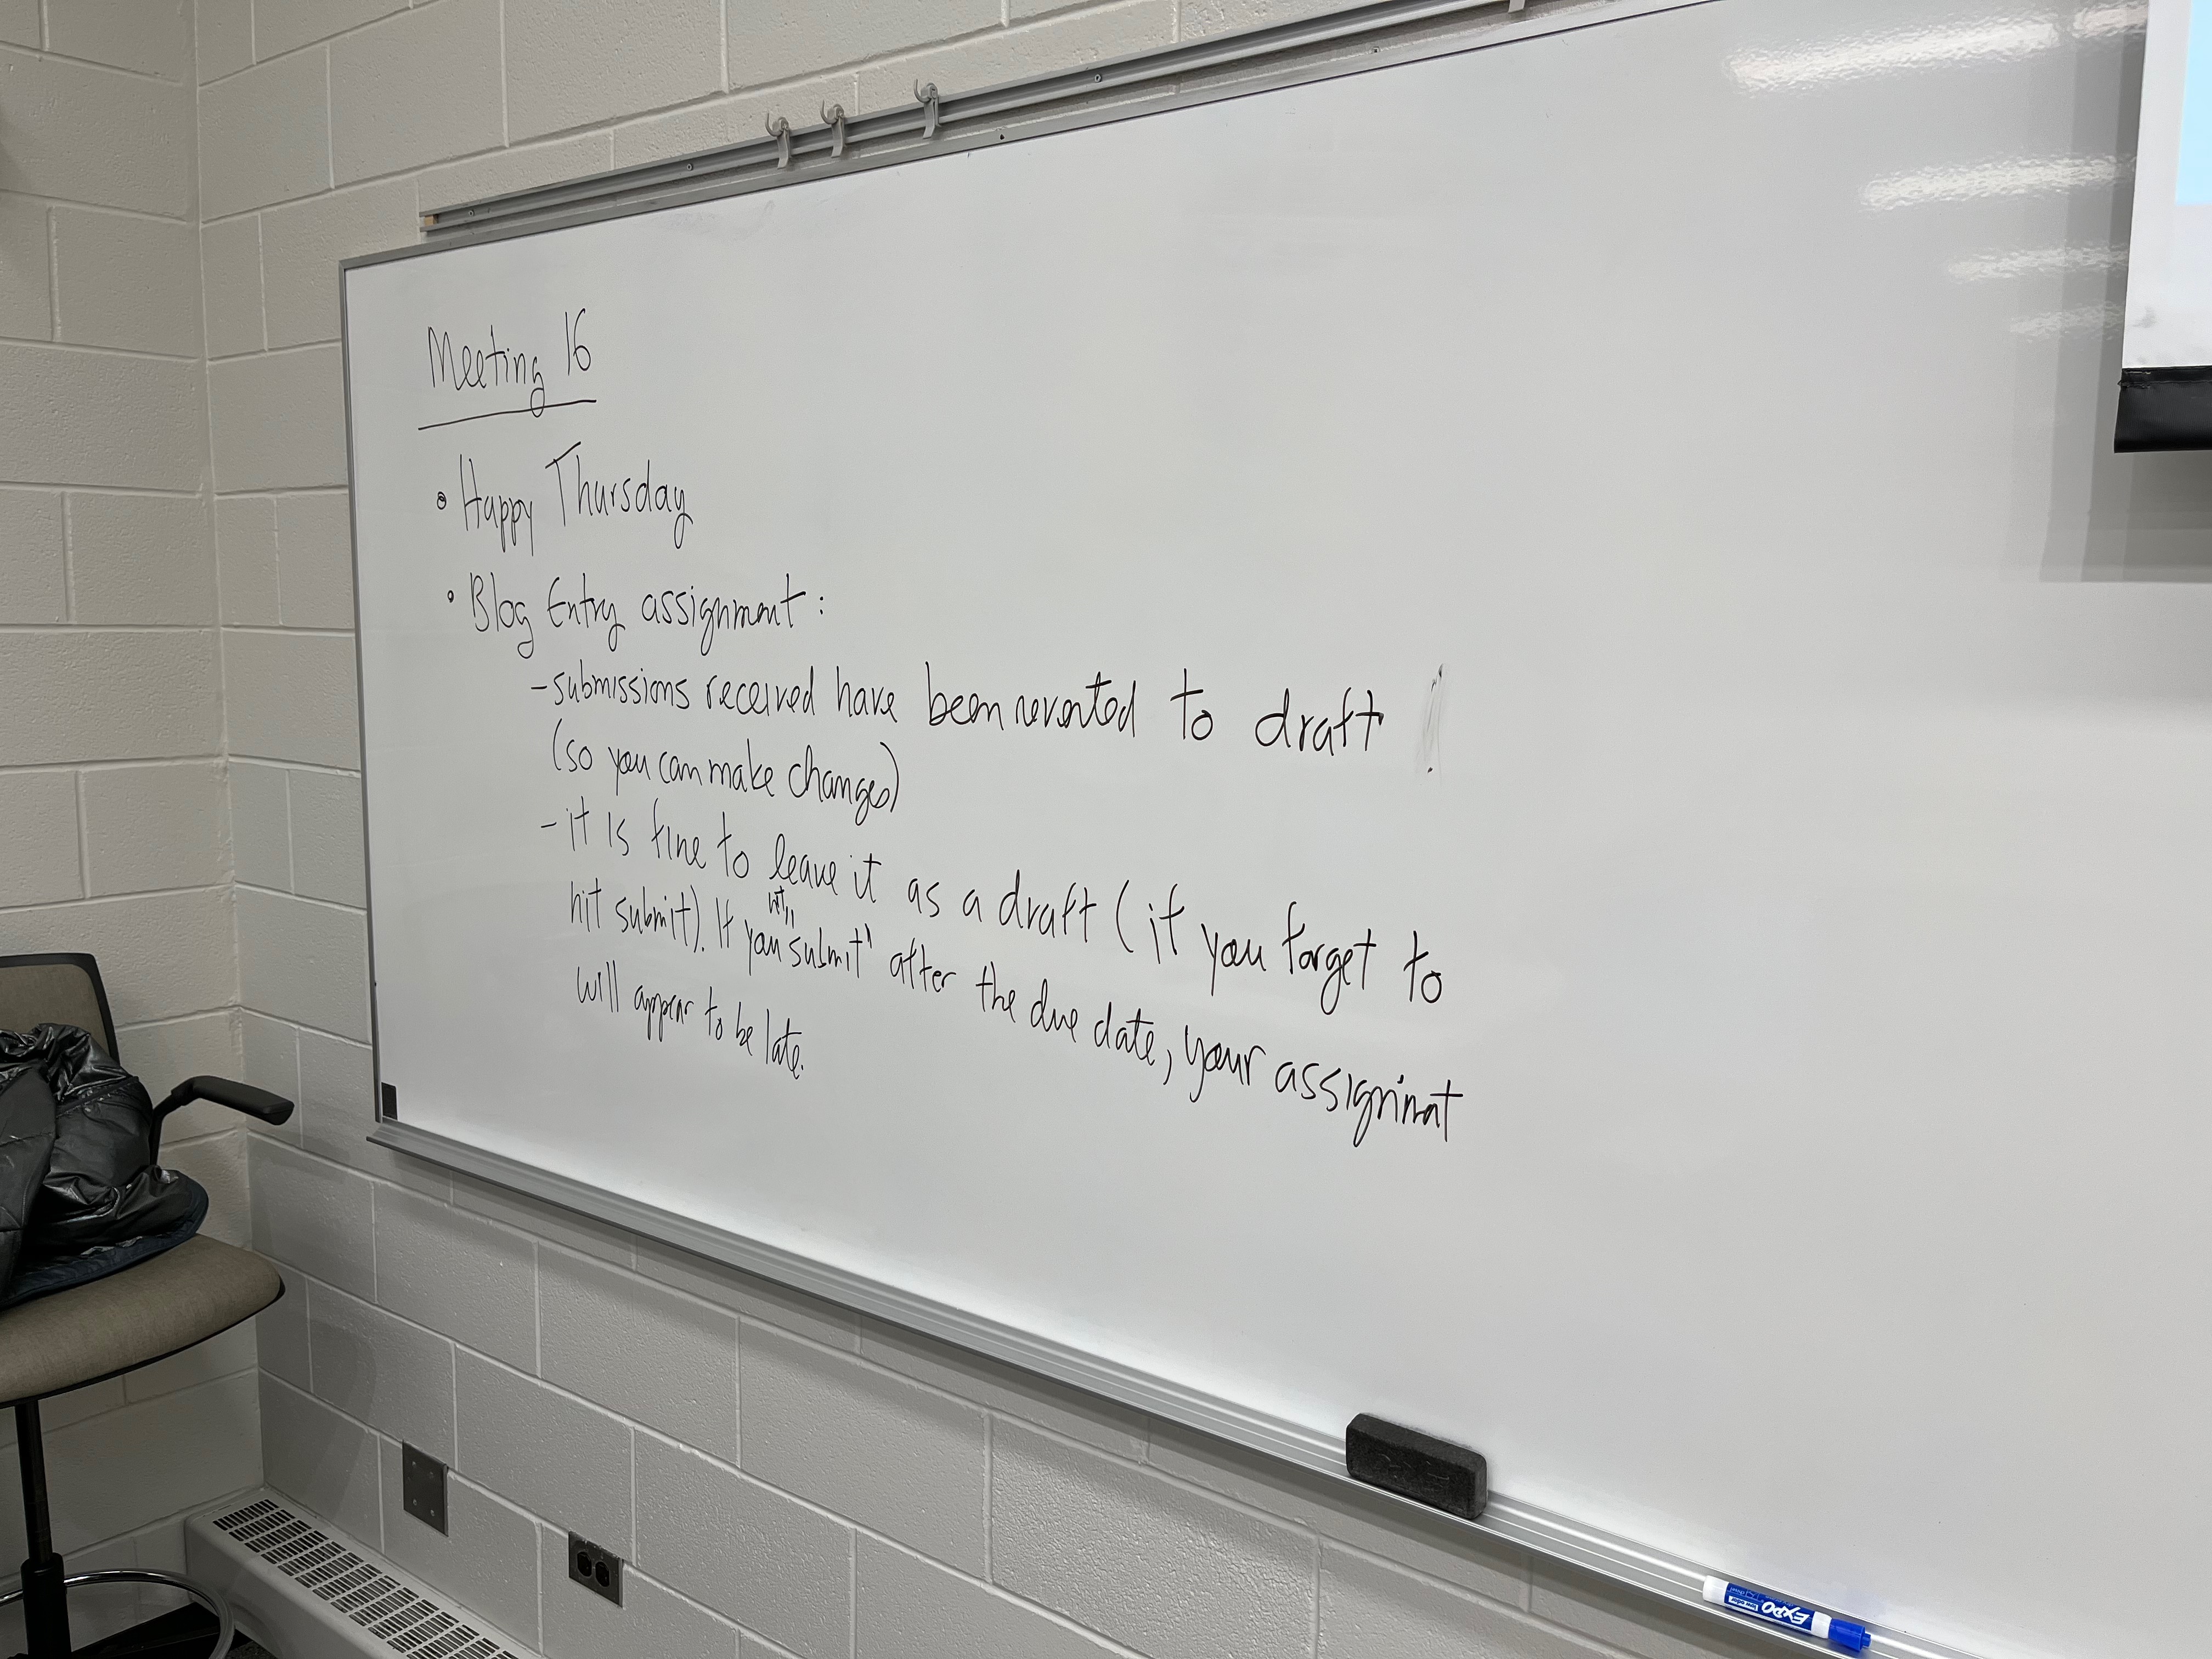 Meeting 16
• Happy Thursday
• Blog Entry assignment:
- submissions received have been reverted to draft
(so you can make changes)
- it is fine to leave it as a draft (if you forget to
hit submit). If you hit "submit" after the due date, your assignment
will appear to be late.
EXPO